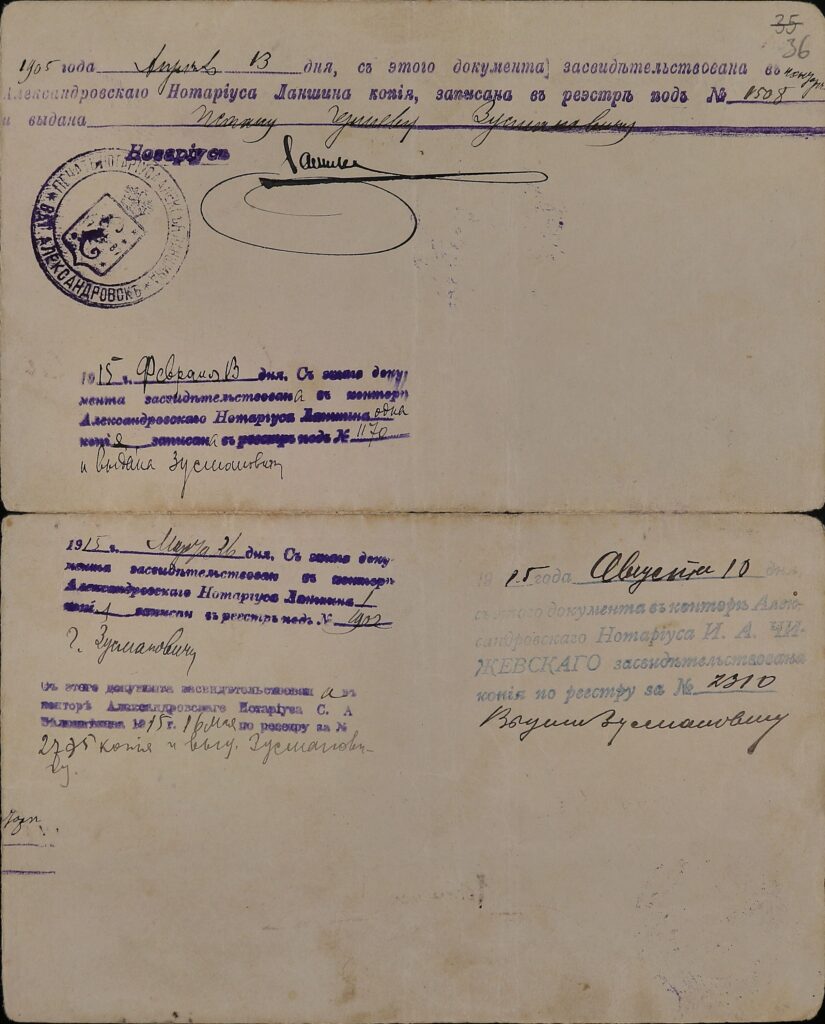 35
36
1905 года Апреля 13 дня, съ этого документа засвидѣтельствована въ контор.
Александровскаго Нотаріуса Ланшина копія, записана въ реэстръ подъ № 1508
и выдана Зусмановичу
Нотаріусъ Ланшин
АЛЕКСАНДРОВСКЪ
1915 г. Февраля 13 дня, Съ этаго доку-
мента засвидѣтельствована въ конторѣ
Александровскаго Нотаріуса Ланшина одна
копія записана въ реестръ подъ № 1170
и выдана Зусмановичу
1915 г. Марта 26 дня, Съ этаго доку-
мента засвидѣтельствован въ конторѣ
Александровскаго Нотаріуса Ланшина 1
копія записан въ реестръ подъ №
г. Зусмановичу
Съ этого документа засвидѣтельствована въ
конторѣ Александровскаго Нотаріуса С. А
1915 г. 16 мая по реэстру за №
2795 копія и выд. Зусманови-
чу.
1915 года Августа 10 дня
съ этого документа въ конторѣ Алек-
сандровскаго Нотаріуса И. А. ЧИ-
ЖЕВСКАГО засвидѣтельствована
копія по реестру за № 2310
Выдана Зусмановичу